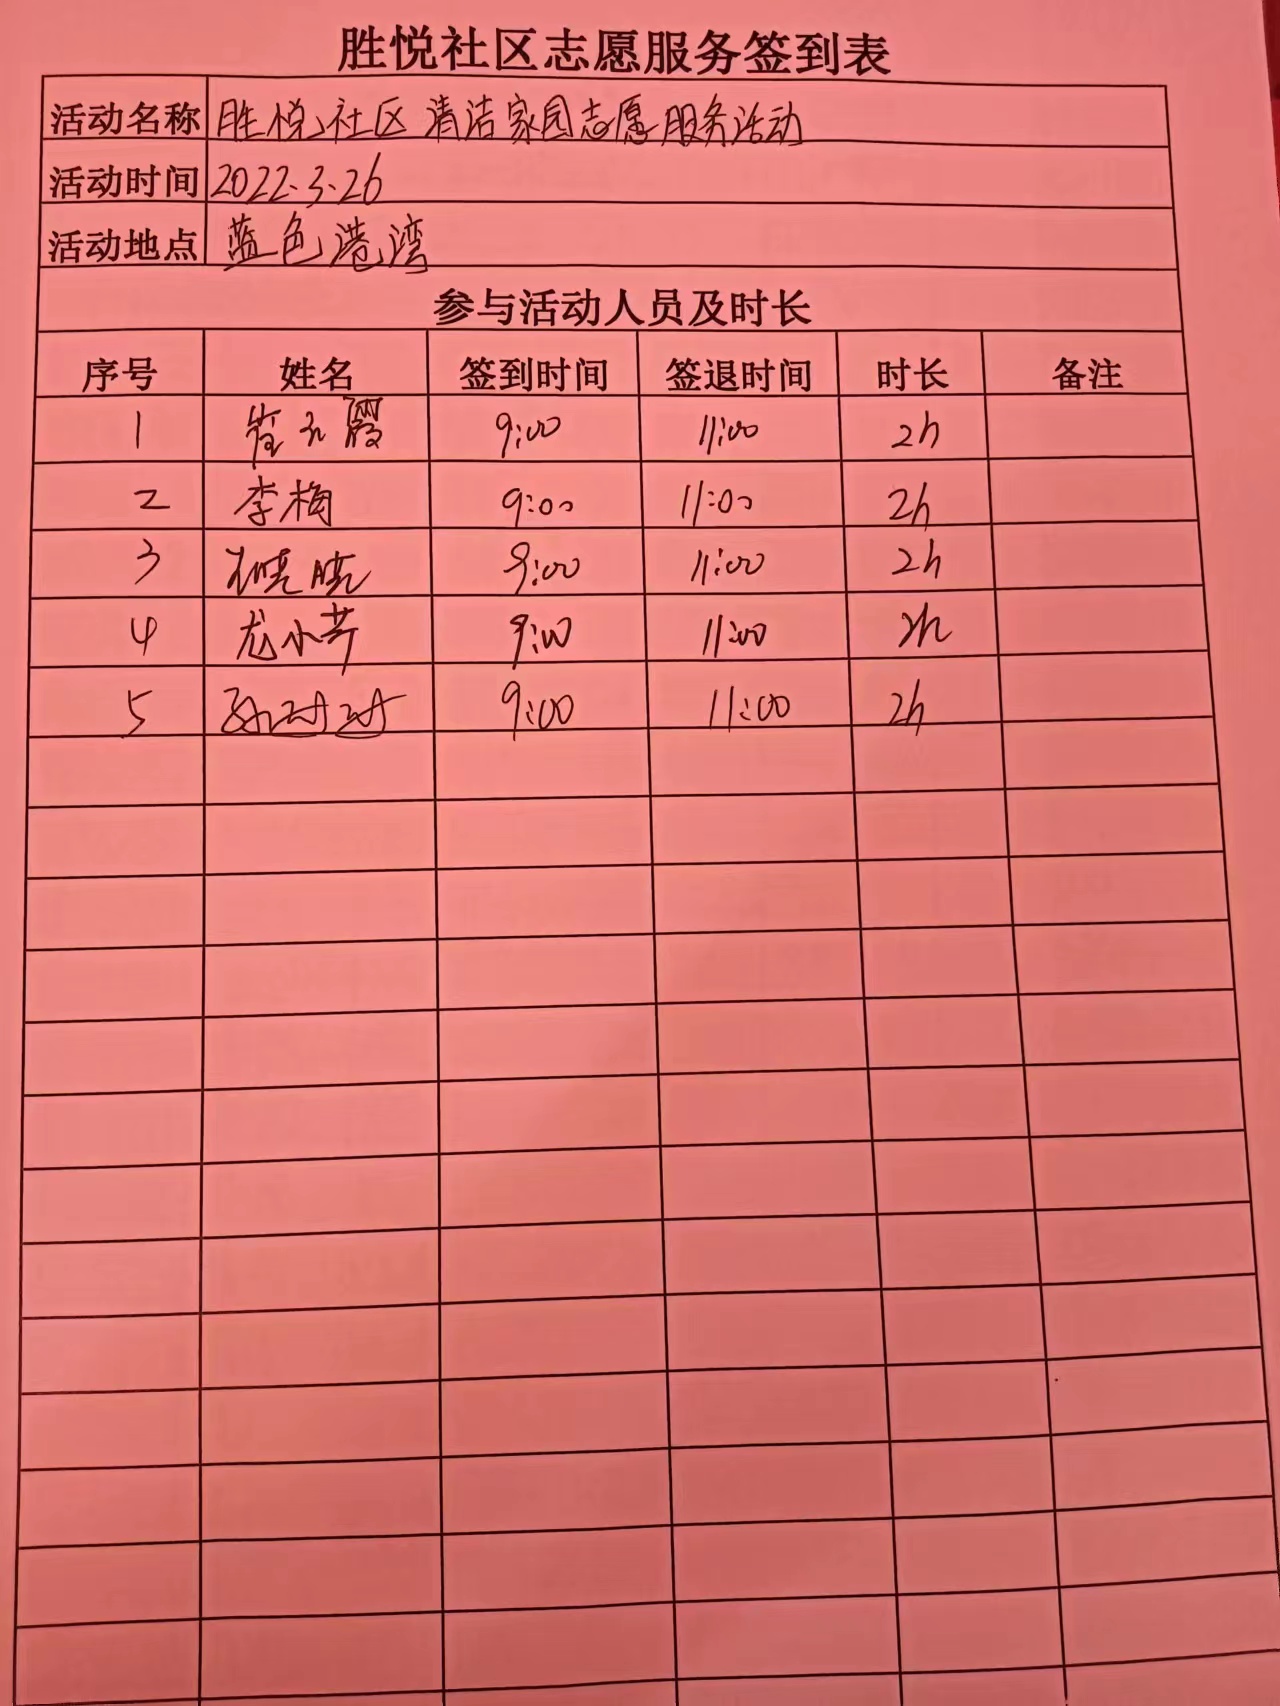 胜悦社区志愿服务签到表
活动名称 胜悦社区清洁家园志愿服务活动
活动时间 2022.3.26
活动地点 蓝色港湾
参与活动人员及时长
序号 姓名 签到时间 签退时间 时长 备注
1 9:00 11:00 2h
2 李梅 9:00 11:00 2h
3 9:00 11:00 2h
4 龙小芹 9:00 11:00 2h
5 9:00 11:00 2h